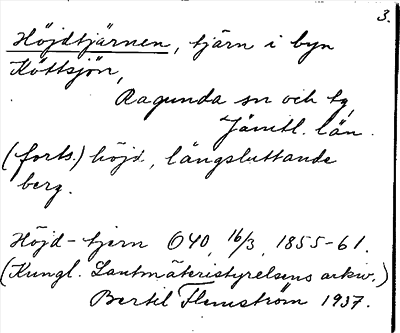 3.
Höjdtjärnen, tjärn i byn
Köttsjön,
Ragunda sn och tg,
Jämtl. län.
(forts.) höjd, långsluttande
berg.
Höjd-tjern Ö40, 16/3, 1855-61.
(Kungl. Lantmäteristyrelsens arkiv.)
Bertil Flemström 1937.